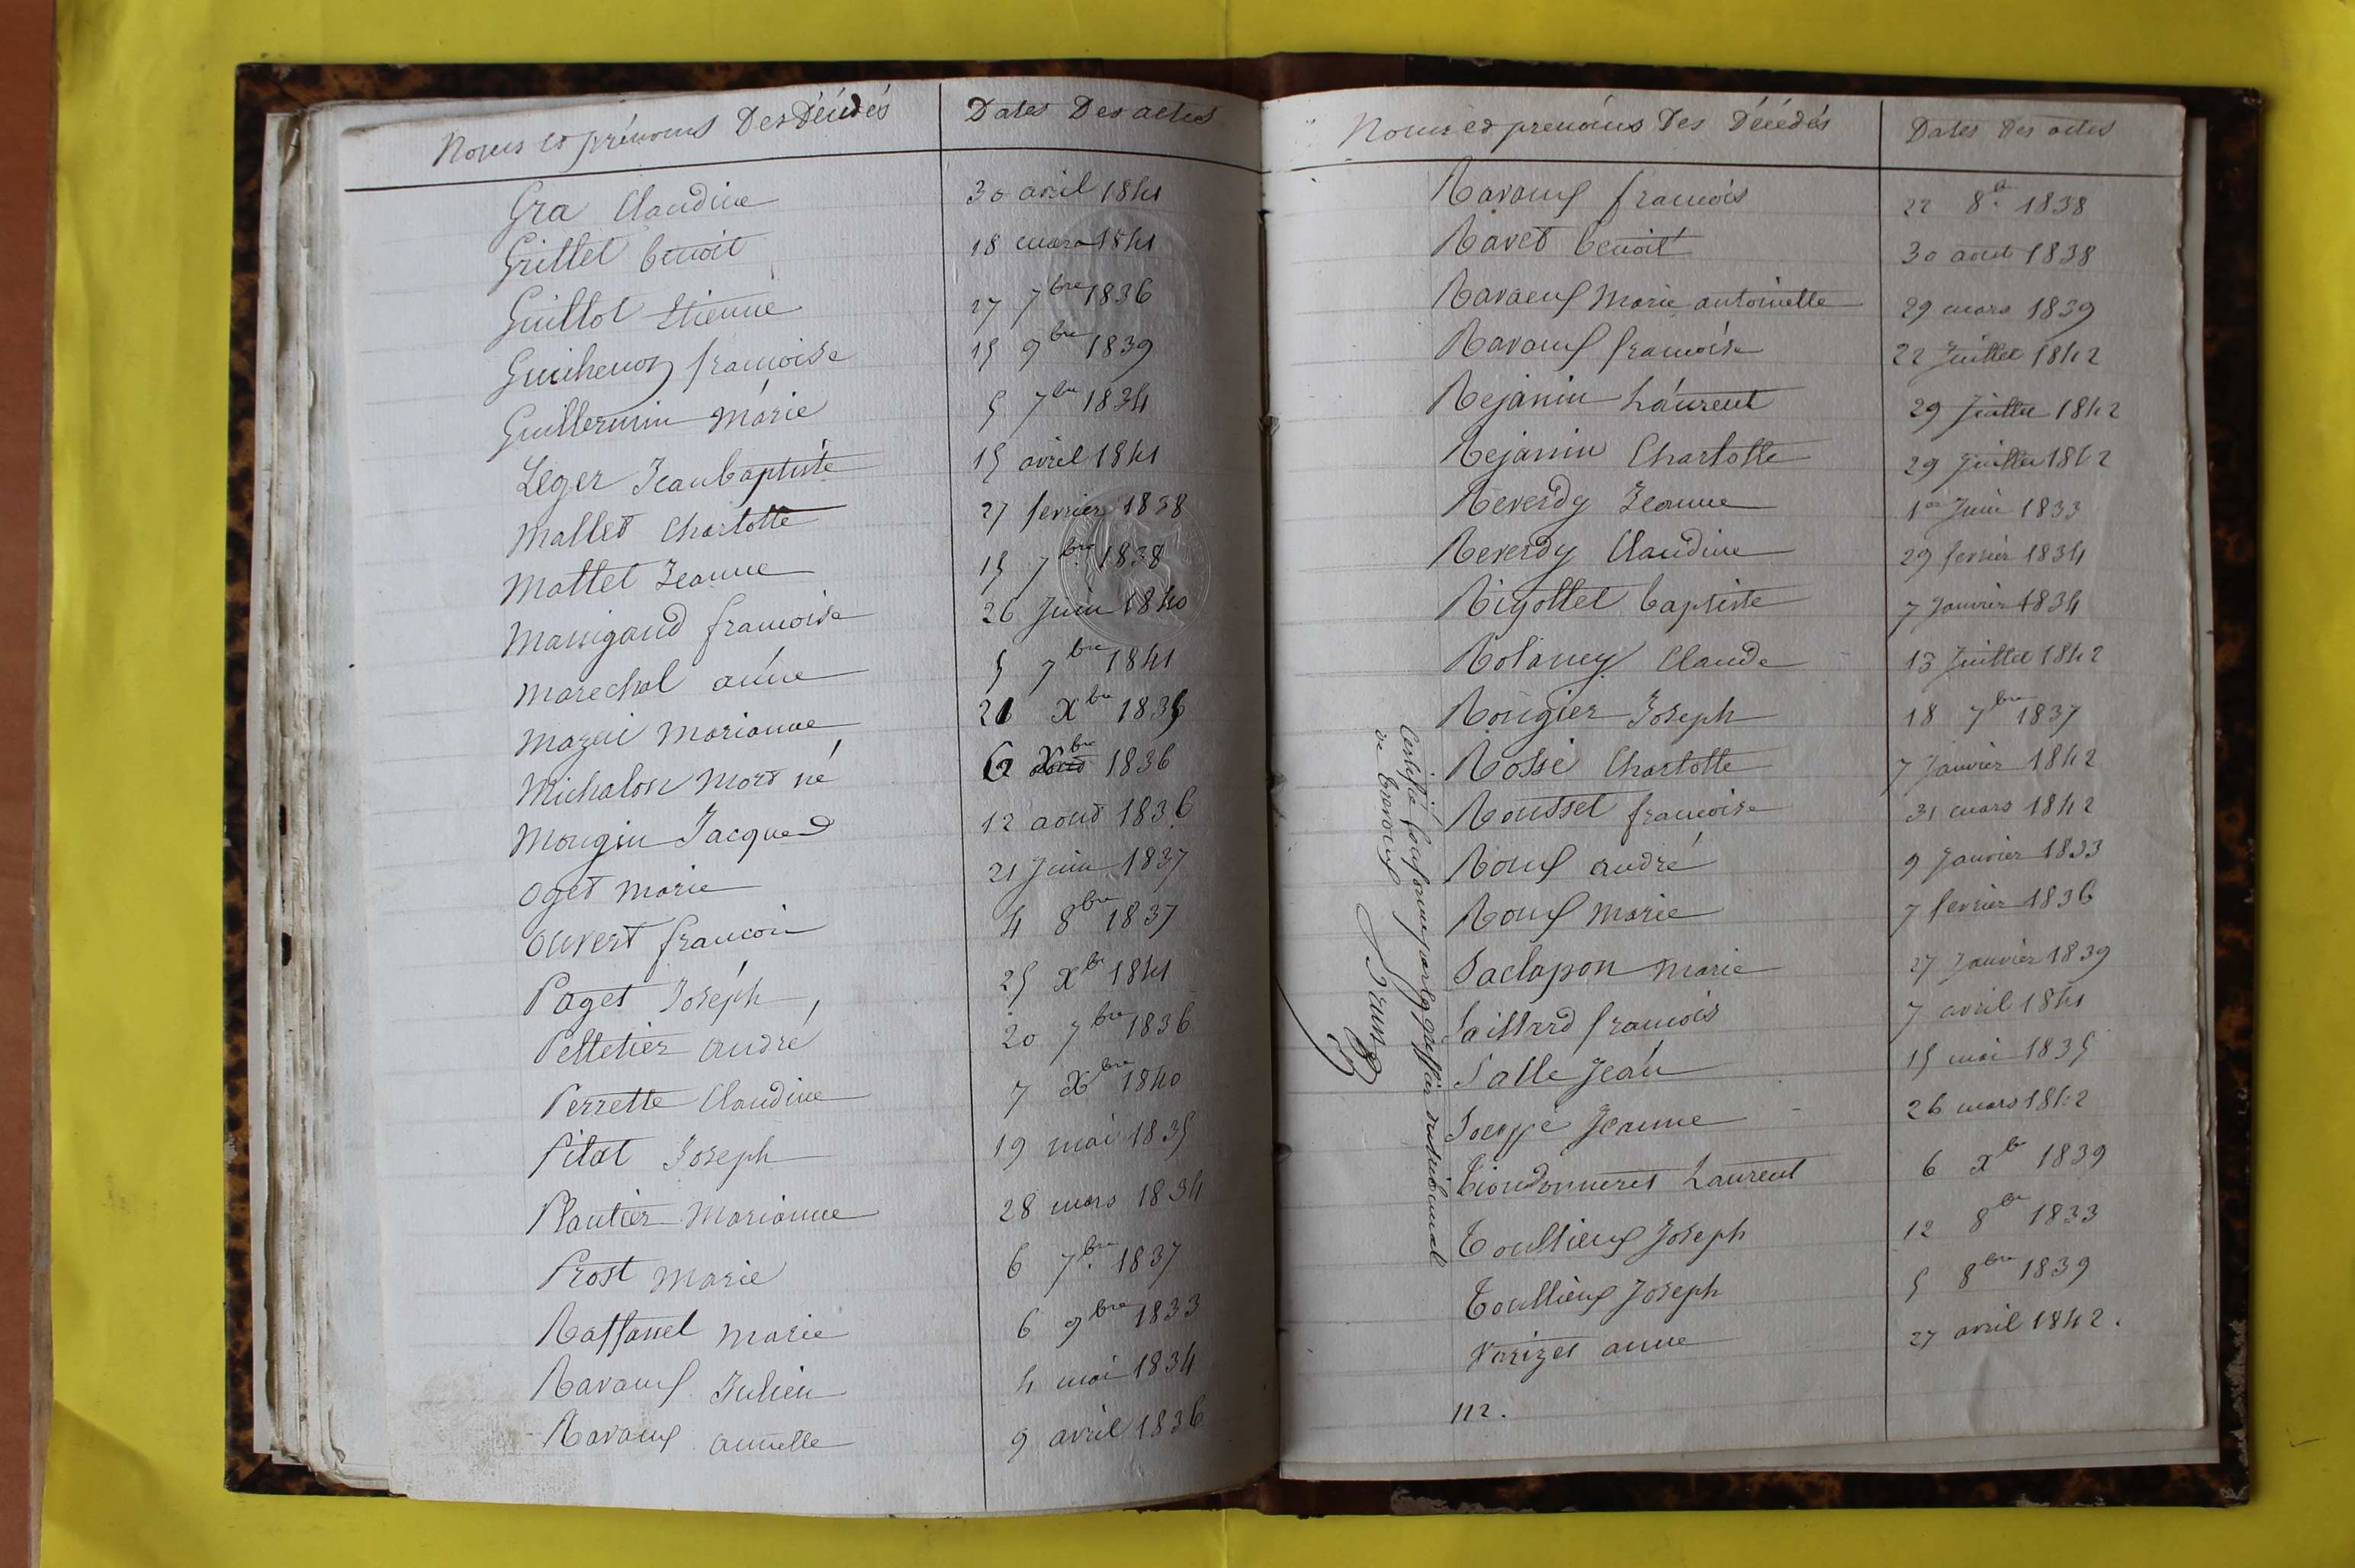 Noms et prénoms Des Décédés Dates Des actes
Gra Claudine 30 avril 1841
Grillet benoit 18 mars 1841
Guillot Etienne 27 7bre 1836
Guichenon francoise 15 9bre 1839
Guillermin Marie 5 7bre 1834
Léger Jean baptiste 15 avril 1841
Mallet Charlotte 27 fevrier 1838
Mallet Jeanne 15 7bre 1838
Massigand francoise 26 Juin 1840
Marechal anne 5 7bre 1841
Mazui Marianne 26 Xbre 1835
Michalon Mort né Xbre 1836
Mongin Jacques 12 aout 1836
Oget Marie 21 Juin 1837
Ouvert francois 4 8bre 1837
Paget Joseph 25 Xbre 1841
Pelletier andré 20 7bre 1836
Perrette Claudine 7 Xbre 1840
Pilat Joseph 19 mai 1835
Plantier Marianne 28 mars 1834
Prost Marie 6 7bre 1837
Raffanel Marie 6 9bre 1833
Ravoux Julien 4 mai 1834
Ravoux annette 9 avril 1836
Noms et prenoms Des Décédés Dates Des actes
Ravoux francois 22 8e 1838
Ravet benoit 30 aout 1838
Ravoeux Marie antoinette 29 mars 1839
Ravoux francoise 22 Juillet 1842
Rejanin Laurent 29 Juillet 1842
Rejanin Charlotte 29 Juillet 1842
Reverdy Jeanne 1er Juin 1833
Reverdy Claudine 29 fevrier 1834
Rigollet baptiste 7 Janvier 1834
Rolaney Claude 13 Juillet 1842
Rougier Joseph 18 7bre 1837
Rossi Charlotte 7 Janvier 1842
Rousset francoise 31 mars 1842
Roux andré 9 Janvier 1833
Roux Marie 7 fevrier 1836
Saclapon Marie 27 Janvier 1839
Saillard francois 7 avril 1841
Salle Jean 15 mai 1835
Jeanne 26 mars 1842
Laurent 6 Xbre 1839
Toullieux Joseph 12 8bre 1833
Toullieux Joseph 5 8bre 1839
Varizet anne 27 avril 1842.
112.
Certifié Conforme par le greffier du tribunal
de trevoux